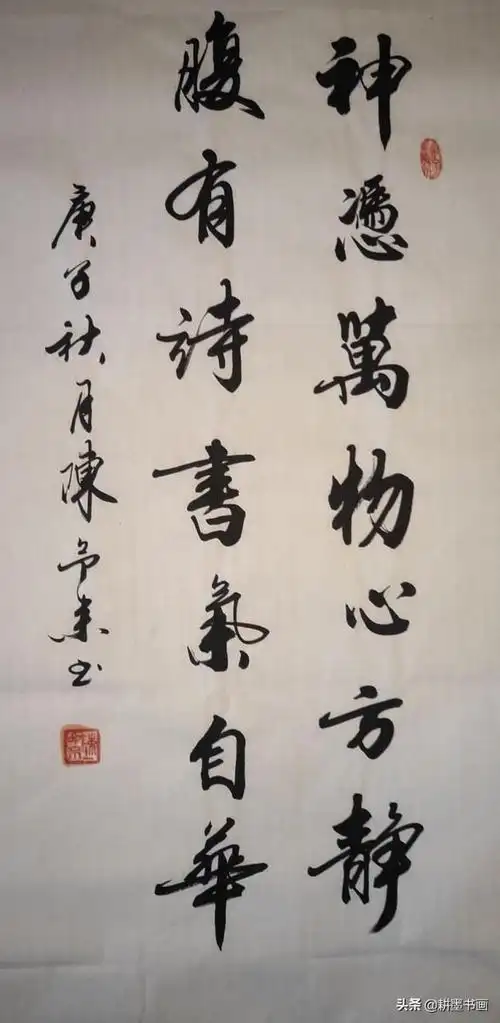 神憑萬物心方静
腹有詩書氣自華
庚子秋月陳予来书
头条 @耕墨书画